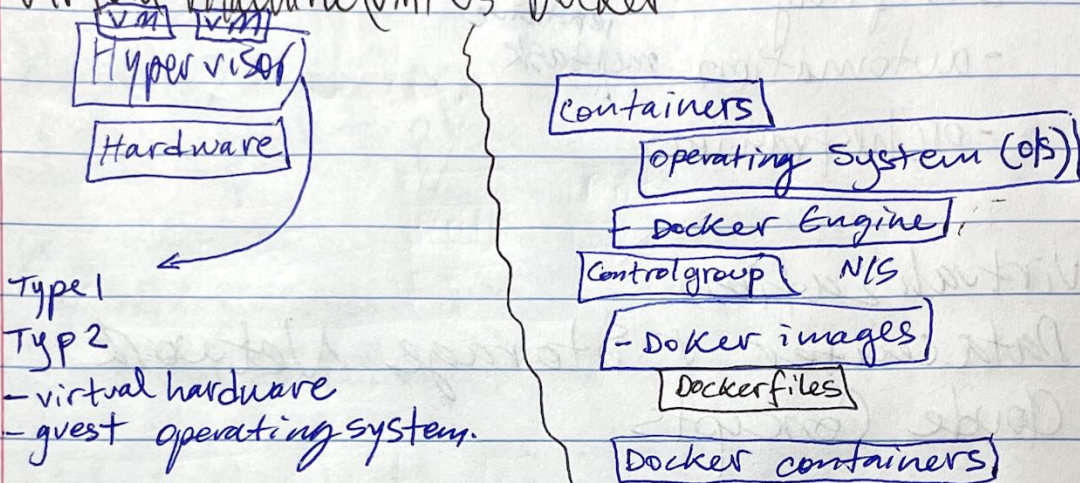 vs Docker
vm vm
Hypervisor
Hardware
Type 1
Typ 2
- virtual hardware
- guest operating system.
Containers
Operating System (O/S)
- Docker Engine
Control group N/S
- Doker images
Dockerfiles
Docker containers